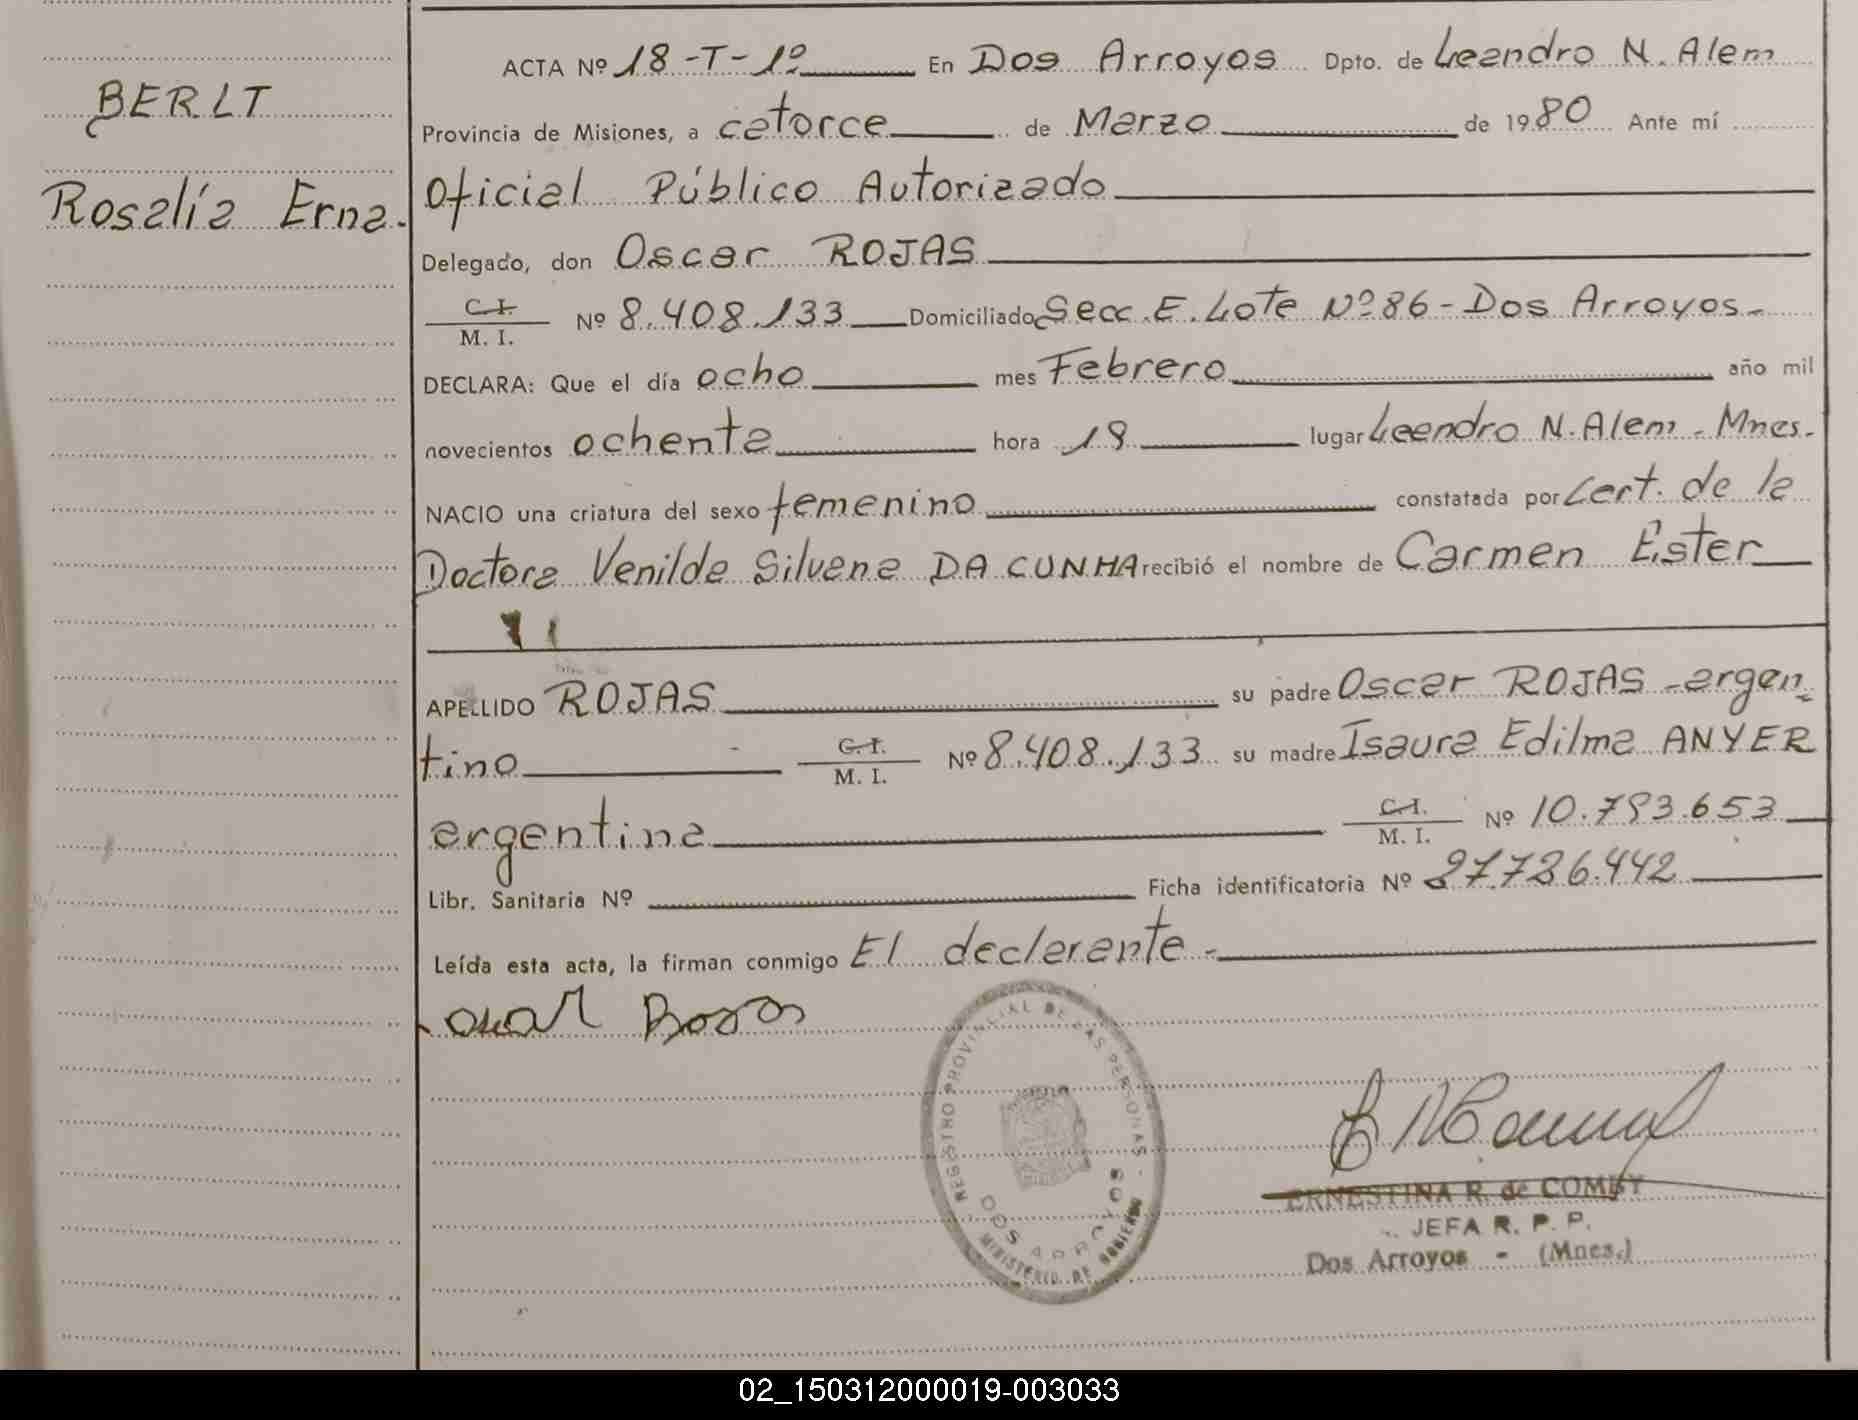 BERLT
Rosalía Erna.
ACTA Nº 18-T-1º En Dos Arroyos Dpto. de Leandro N. Alem
Provincia de Misiones, a catorce de Marzo de 1980 Ante mí
Oficial Público Autorizado
Delegado, don Oscar ROJAS
C.I.
M. I. Nº 8.408.133 Domiciliado Secc. E. Lote Nº 86 - Dos Arroyos.-
DECLARA: Que el día ocho mes Febrero año mil
novecientos ochenta hora lugar Leandro N. Alem - Mnes.
NACIO una criatura del sexo femenino constatada por Cert. de la
Doctora Venilda Silvana DA CUNHA recibió el nombre de Carmen Ester
APELLIDO ROJAS su padre Oscar ROJAS - argen
tino C.I. M. I. Nº 8.408.133 su madre Isaura Edilma ANYER
argentina C.I. M. I. Nº 10.793.653
Libr. Sanitaria Nº Ficha identificatoria Nº
Leída esta acta, la firman conmigo El declarante -
REGISTRO PROVINCIAL DE LAS PERSONAS -
DOS ARROYOS
MINISTERIO DE GOBIERNO
ERNESTINA R. de COMBY
JEFA R. P. P.
Dos Arroyos - (Mnes.)
02_150312000019-003033